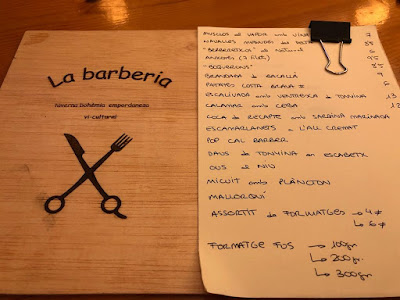 La barberia
taverna bohèmia empordanesa
vi-cultural
MUSCLOS AL VAPOR amb 7
NAVALLES
"BERBERETXOS" AL NATURAL
ANXOVES (7 filets)
"BOQUERONS"
BRANDADA DE BACALLÀ
PATATES COSTA BRAVA 6
ESCALIVADA amb VENTRESCA DE TONYINA 13
CALAMAR amb CEBA 12
COCA DE RECAPTE amb SARDINA MARINADA
ESCAMARLANETS A L'ALL CREMAT
POP CAL BARBER
DAUS DE TONYINA EN ESCABETX
OUS AL NIU
MICUIT amb PLÀNCTON
MALLORQUÍ
ASSORTIT DE FORMATGES → 4
↳ 6
FORMATGE FUS → 100gr.
↳ 200gr.
↳ 300gr.